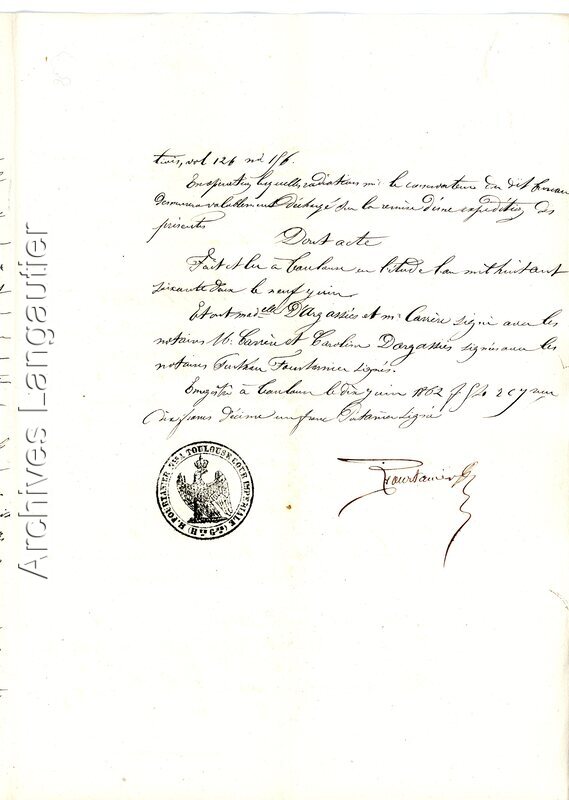 trois, vol 126 nº 156.
En opérant lesquelles radiations mr le conservateur du dit bureau
demeurera valablement déchargé sur la remise d'une expédition des
présentes
Dont acte
Fait et lu à Toulouse en l'étude l'an mil huit cent
soixante deux le neuf juin
Et ont madelle Dargassiés et mr Carrère signé avec les
notaires M. Carrère et Caroline Dargassiés signés avec les
notaires Fourtanier signés.
Enregistré à Toulouse le dix juin 1862 fº 54 r c 7 reçu
dix francs décime un franc signé
H. FOURTANIER NRE A TOULOUSE COUR IMPERIALE (HTE GNE)
Fourtanier
Archives Langautier